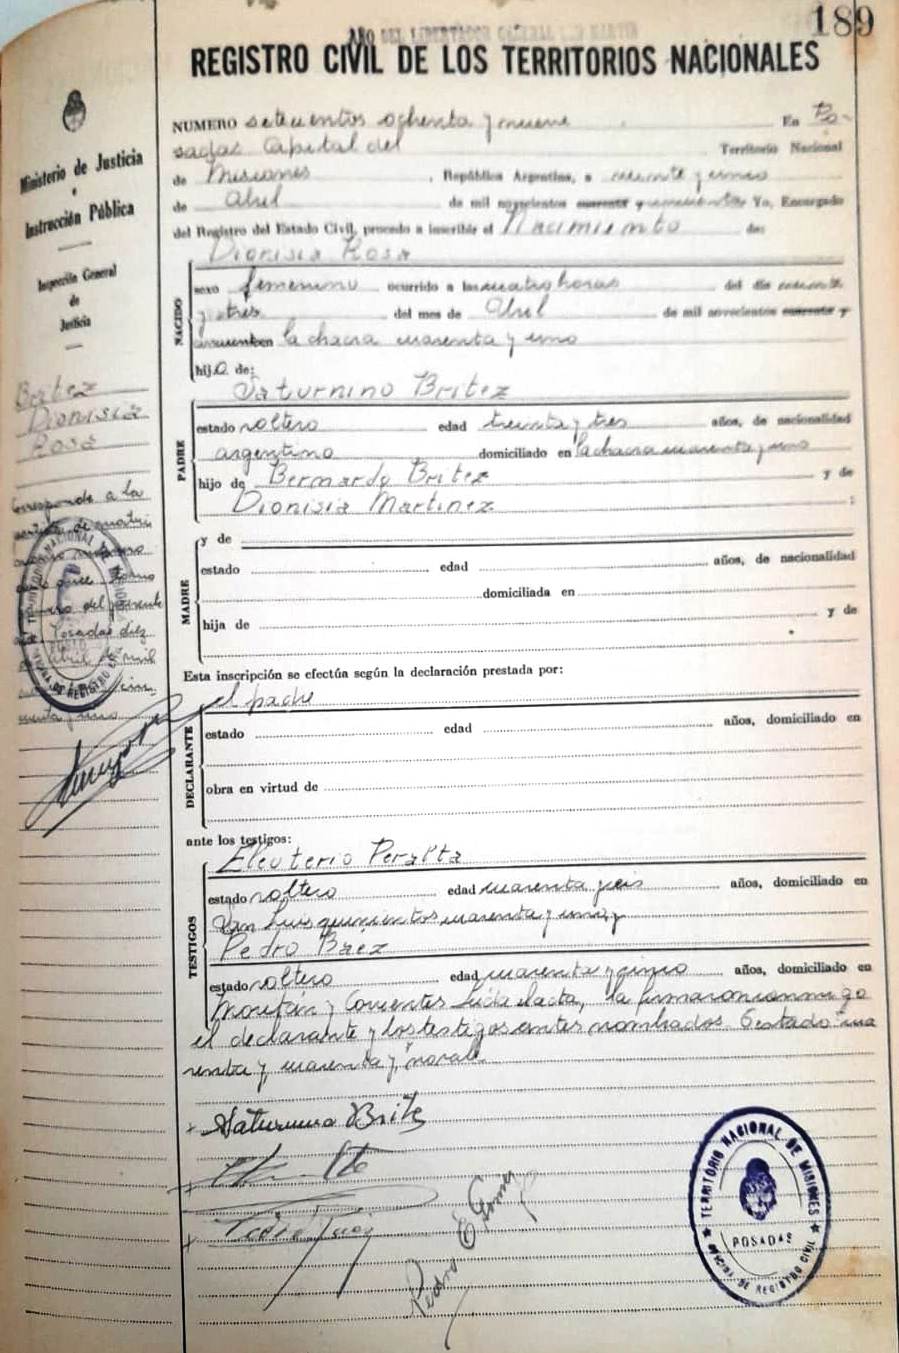 189
AÑO DEL LIBERTADOR GENERAL SAN MARTIN
REGISTRO CIVIL DE LOS TERRITORIOS NACIONALES
Ministerio de Justicia
e
Instrucción Pública
Inspección General
de
Justicia
Britez
Dionisia
Rosa
Corresponde a la
del presente
Posadas diez
Abril de mil
NUMERO setecientos ochenta y nueve En Po-
sadas Capital del Territorio Nacional
de Misiones, República Argentina, a veinte y cinco
de Abril de mil novecientos cuarenta y cincuenta Yo, Encargado
del Registro del Estado Civil, procedo a inscribir el Nacimiento de:
NACIDO
Dionisia Rosa
sexo femenino ocurrido a las cuatro horas del día veinte
y tres del mes de Abril de mil novecientos cuarenta y
en la chacra cuarenta y uno
hija de:
PADRE
Saturnino Britez
estado soltero edad treinta y tres años, de nacionalidad
argentino domiciliado en la chacra cuarenta y uno
hijo de Bernardo Britez y de
Dionisia Martinez :
MADRE
y de
estado edad años, de nacionalidad
domiciliada en
hija de y de
Esta inscripción se efectúa según la declaración prestada por:
DECLARANTE
el padre
estado edad años, domiciliado en
obra en virtud de
ante los testigos:
TESTIGOS
Eleuterio Peralta
estado soltero edad cuarenta y seis años, domiciliado en
San Luis quinientos cuarenta y uno, y
Pedro Baez
estado soltero edad cuarenta y cinco años, domiciliado en
y Corrientes Leída el acta, la firmaron conmigo
el declarante y los testigos antes nombrados. Testado cua
renta y cuarenta y, no vale
Saturnino Britez
Pedro Baez
Pedro E Gomez
TERRITORIO NACIONAL DE MISIONES
POSADAS
OFICINA DE REGISTRO CIVIL
TERRITORIO NACIONAL DE MISIONES
OFICINA DE REGISTRO CIVIL